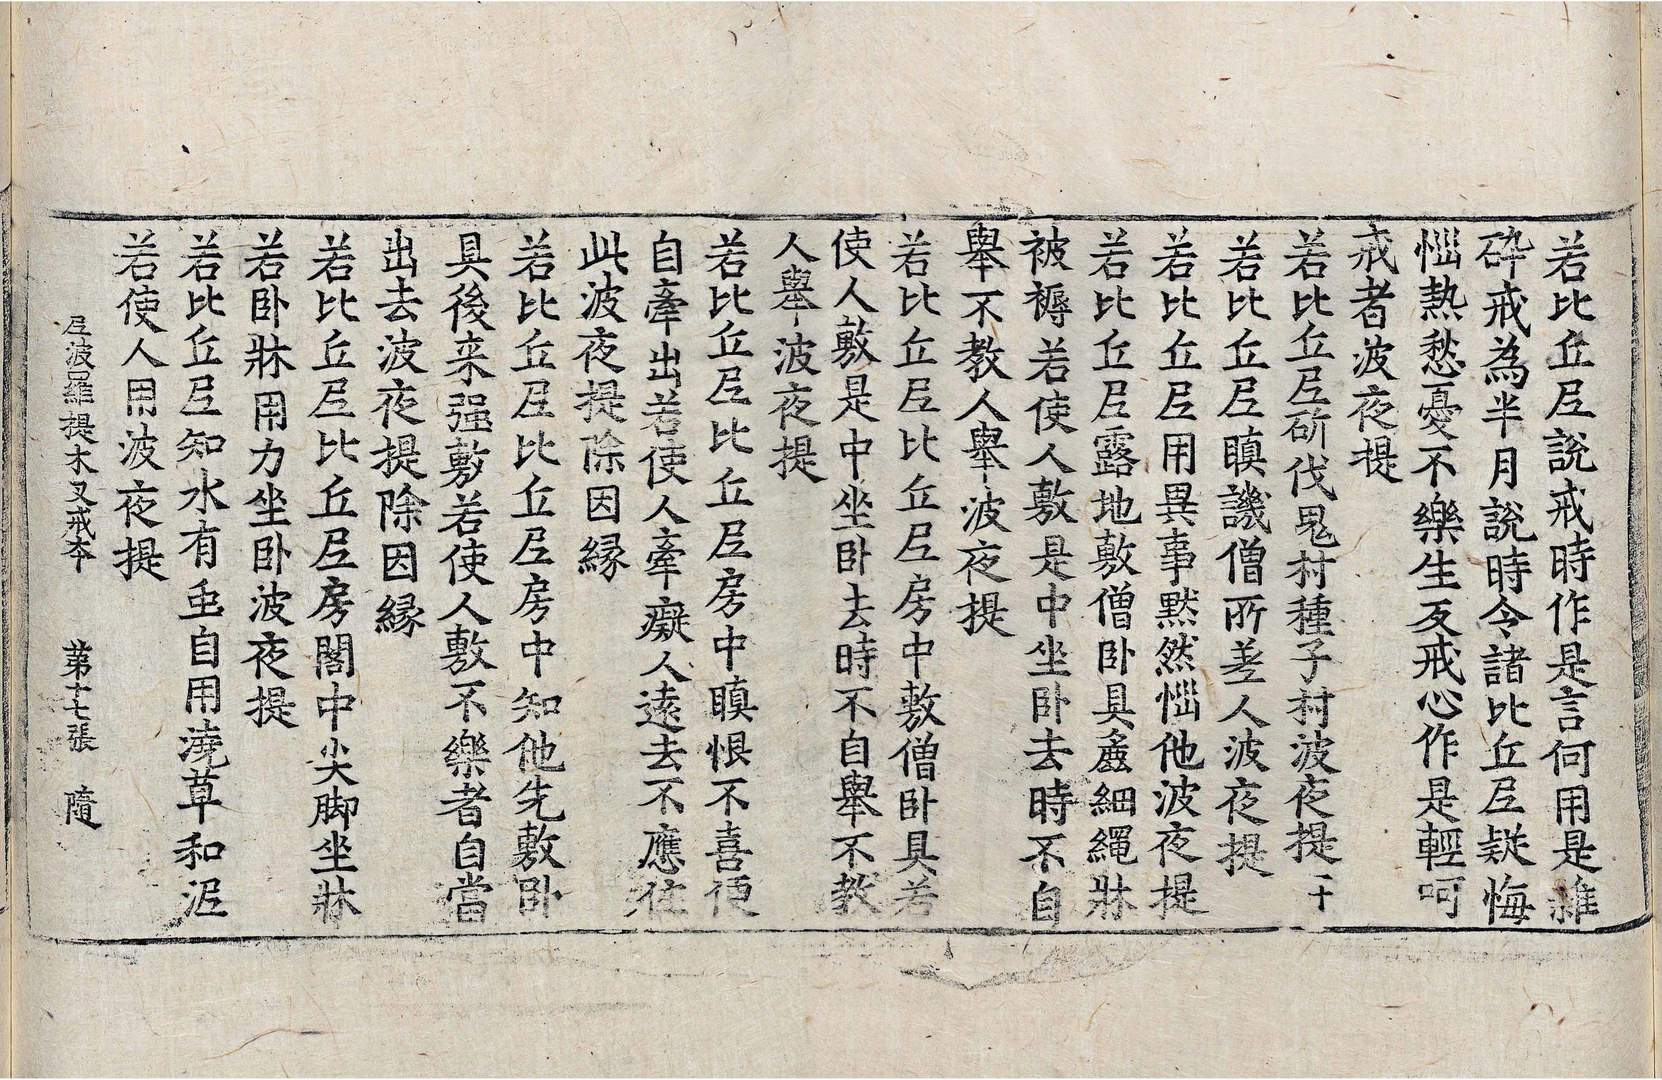 若比丘尼說戒時作是言何用是雜
碎戒為半月說時令諸比丘尼疑悔
惱熱愁憂不樂生反戒心作是輕呵
戒者波夜提
若比丘尼斫伐鬼村種子村波夜提 十
若比丘尼瞋譏僧所差人波夜提
若比丘尼用異事默然惱他波夜提
若比丘尼露地敷僧卧具麁細繩牀
被褥若使人敷是中坐卧去時不自
舉不教人舉波夜提
若比丘尼比丘尼房中敷僧卧具若
使人敷是中坐卧去時不自舉不教
人舉波夜提
若比丘尼比丘尼房中瞋恨不喜便
自牽出若使人牽癡人遠去不應住
此波夜提除因縁
若比丘尼比丘尼房中知他先敷卧
具後来强敷若使人敷不樂者自當
出去波夜提除因縁
若比丘尼比丘尼房閣中尖脚坐牀
若卧牀用力坐卧波夜提
若比丘尼知水有虫自用澆草和泥
若使人用波夜提
尼波羅提木叉戒本 第十七張 隨